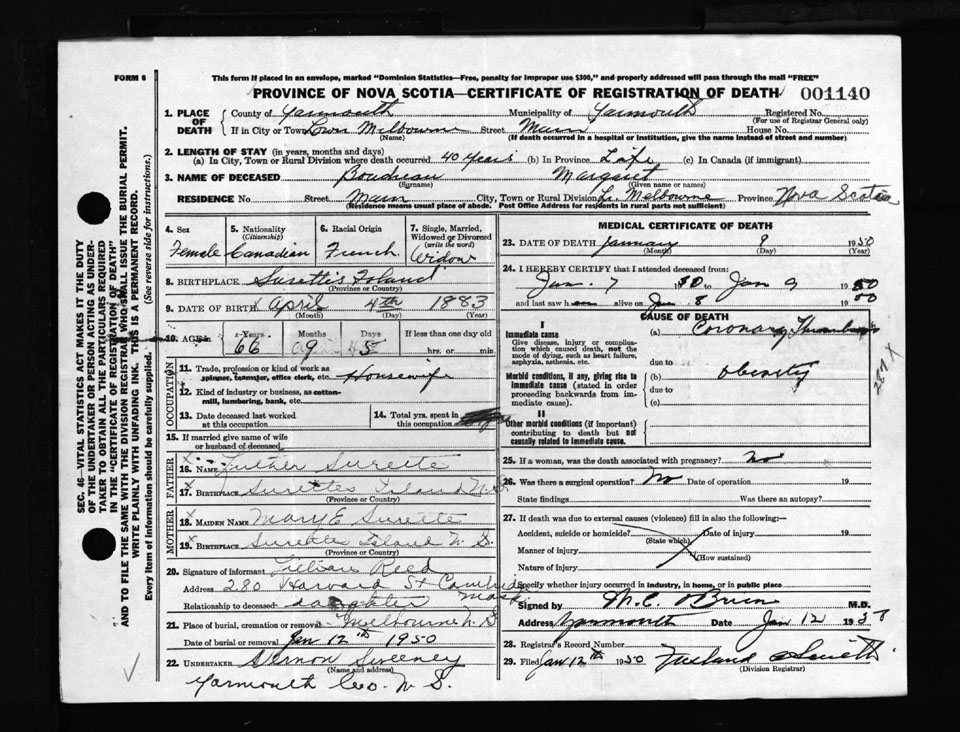 FORM 6
This form if placed in an envelope, marked "Dominion Statistics—Free, penalty for improper use $300," and properly addressed will pass through the mail "FREE"
PROVINCE OF NOVA SCOTIA—CERTIFICATE OF REGISTRATION OF DEATH 001140
1. PLACE OF DEATH County of Yarmouth Municipality of Yarmouth Registered No.
(For use of Registrar General only)
If in City or Town Melbourne Street Main House No.
(Name) (If death occurred in a hospital or institution, give the name instead of street and number)
2. LENGTH OF STAY (in years, months and days)
(a) In City, Town or Rural Division where death occurred 40 Years (b) In Province Life (c) In Canada (if immigrant)
3. NAME OF DECEASED Boudreau Margaret
(Surname) (Given name or names)
RESIDENCE No. Street Main City, Town or Rural Division Melbourne Province Nova Scotia
(Residence means usual place of abode. Post Office Address for residents in rural parts not sufficient)
4. Sex 5. Nationality (Citizenship) 6. Racial Origin 7. Single, Married, Widowed or Divorced (write the word)
Female Canadian French Widow
8. BIRTHPLACE Surette's Island
(Province or Country)
9. DATE OF BIRTH April 4th 1883
(Month) (Day) (Year)
10. AGE in Years Months Days If less than one day old
66 9 5 hrs. or min.
OCCUPATION
11. Trade, profession or kind of work as spinner, teamster, office clerk, etc. Housewife
12. Kind of industry or business, as cotton-mill, lumbering, bank, etc.
13. Date deceased last worked at this occupation 14. Total yrs. spent in this occupation
15. If married give name of wife or husband of deceased
FATHER
16. Name Luther Surette
17. Birthplace Surettes Island N.S.
(Province or Country)
MOTHER
18. MAIDEN NAME Mary E Surette
19. BIRTHPLACE Surettes Island N.S.
(Province or Country)
20. Signature of informant Lillian Reed
Address 280 Harvard St Cambridge Mass
Relationship to deceased daughter
21. Place of burial, cremation or removal Melbourne N.S
Date of burial or removal Jan 12th 1950
22. UNDERTAKER Vernon Sweeney
(Name and address)
Yarmouth Co. N.S.
MEDICAL CERTIFICATE OF DEATH
23. DATE OF DEATH January 9 1950
(Month) (Day) (Year)
24. I HEREBY CERTIFY that I attended deceased from:
Jan. 7 1950 to Jan 9 1950
and last saw h alive on Jan 8 1950
CAUSE OF DEATH
I
Immediate cause (a) Coronary Thrombosis
Give disease, injury or complication which caused death, not the mode of dying, such as heart failure, asphyxia, asthenia, etc.
due to
Morbid conditions, if any, giving rise to immediate cause (stated in order proceeding backwards from immediate cause). (b) Obesity
due to
(c)
II
Other morbid conditions (if important) contributing to death but not causally related to immediate cause.
287 X
25. If a woman, was the death associated with pregnancy? no
26. Was there a surgical operation? No Date of operation 19
State findings Was there an autopsy?
27. If death was due to external causes (violence) fill in also the following:—
Accident, suicide or homicide? Date of injury 19
(State which)
Manner of injury (How sustained)
Nature of injury
Specify whether injury occurred in industry, in home, or in public place
Signed by M.C. O'Brien M.D.
Address Yarmouth Date Jan 12 1950
28. Registrar's Record Number
29. Filed Jan 12th 1950
(Division Registrar)
SEC. 46—VITAL STATISTICS ACT MAKES IT THE DUTY OF THE UNDERTAKER OR PERSON ACTING AS UNDERTAKER TO OBTAIN ALL THE PARTICULARS REQUIRED IN THE "CERTIFICATE OF REGISTRATION OF DEATH" AND TO FILE THE SAME WITH THE DIVISION REGISTRAR WHO SHALL ISSUE THE BURIAL PERMIT.
WRITE PLAINLY WITH UNFADING INK. THIS IS A PERMANENT RECORD.
Every item of information should be carefully supplied. (See reverse side for instructions.)